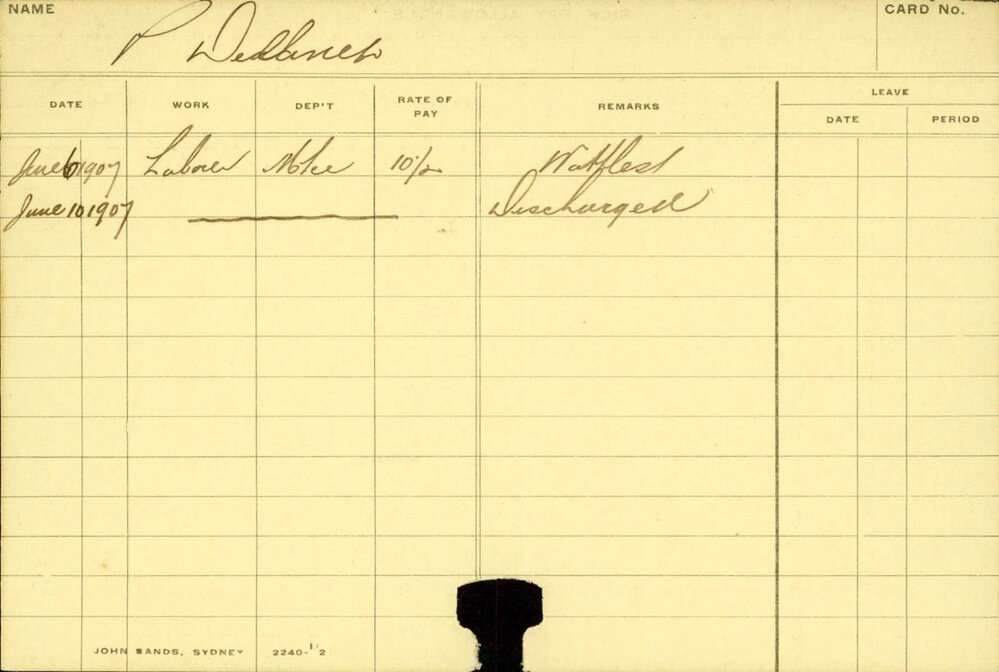 NAME
P
CARD No.
DATE WORK DEP'T RATE OF PAY REMARKS LEAVE
DATE PERIOD
June 6 1907 Labour 10/-
June 10 1907 Discharged
JOHN SANDS, SYDNEY 2240-1/2